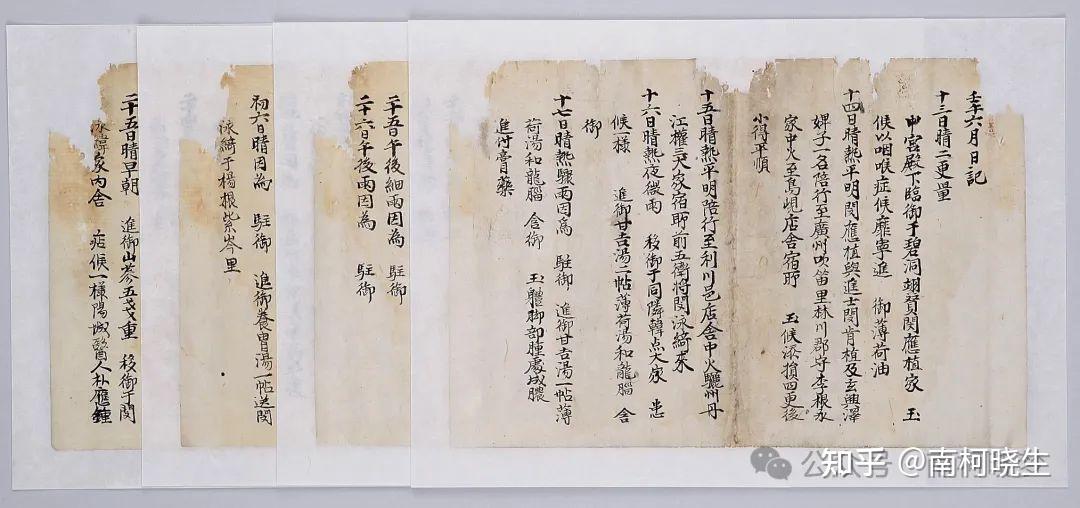 壬午六月日記
十三日晴二更量
中宮殿下臨御于碧洞翊贊閔應植家 玉
候以咽喉症候靡寧進 御薄荷油
十四日晴熱平明閔應植與進士閔肯植及玄興澤
婢子一名陪行至廣州吹笛里林川郡守李根永
家中火至鳥峴店舍宿所 玉候添損四更後
小得平順
十五日晴熱平明陪行至利川邑店舍中火驪州丹
江權三大家宿所前五衛將閔泳綺來
十六日晴熱夜微雨 移御于同隣韓点大家 患
候一樣 進御甘吉湯二帖薄荷湯和龍腦 含
御
十七日晴熱驟雨因爲 駐御 進御甘吉湯一帖薄
荷湯和龍腦 含御 玉體脚部腫處成膿
進付膏藥
二十五日午後細雨因為 駐御
二十六日午後雨因為 駐御
初六日晴因為 駐御 進御養胃湯一帖送閔
泳綺于楊根紫岑里
二十五日晴早朝 進御山蔘五戔重 移御于閔
泳緯家內舍 候一樣陽城醫人朴應鍾
知乎 @南柯晓生